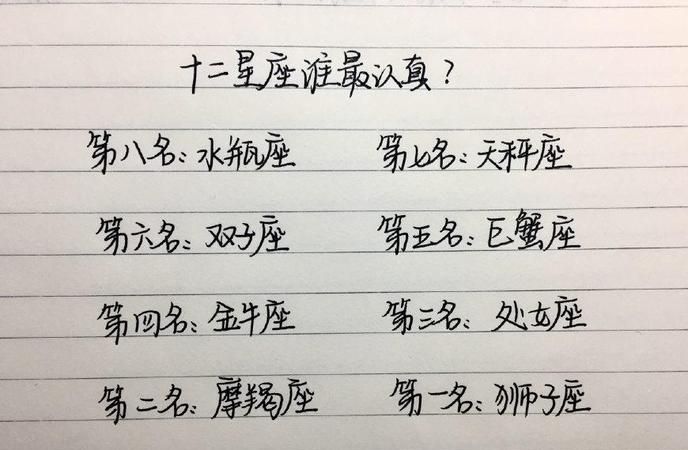 十二星座谁最认真?
第八名:水瓶座 第七名:天秤座
第六名:双子座 第五名:巨蟹座
第四名:金牛座 第三名:处女座
第二名:摩羯座 第一名:狮子座